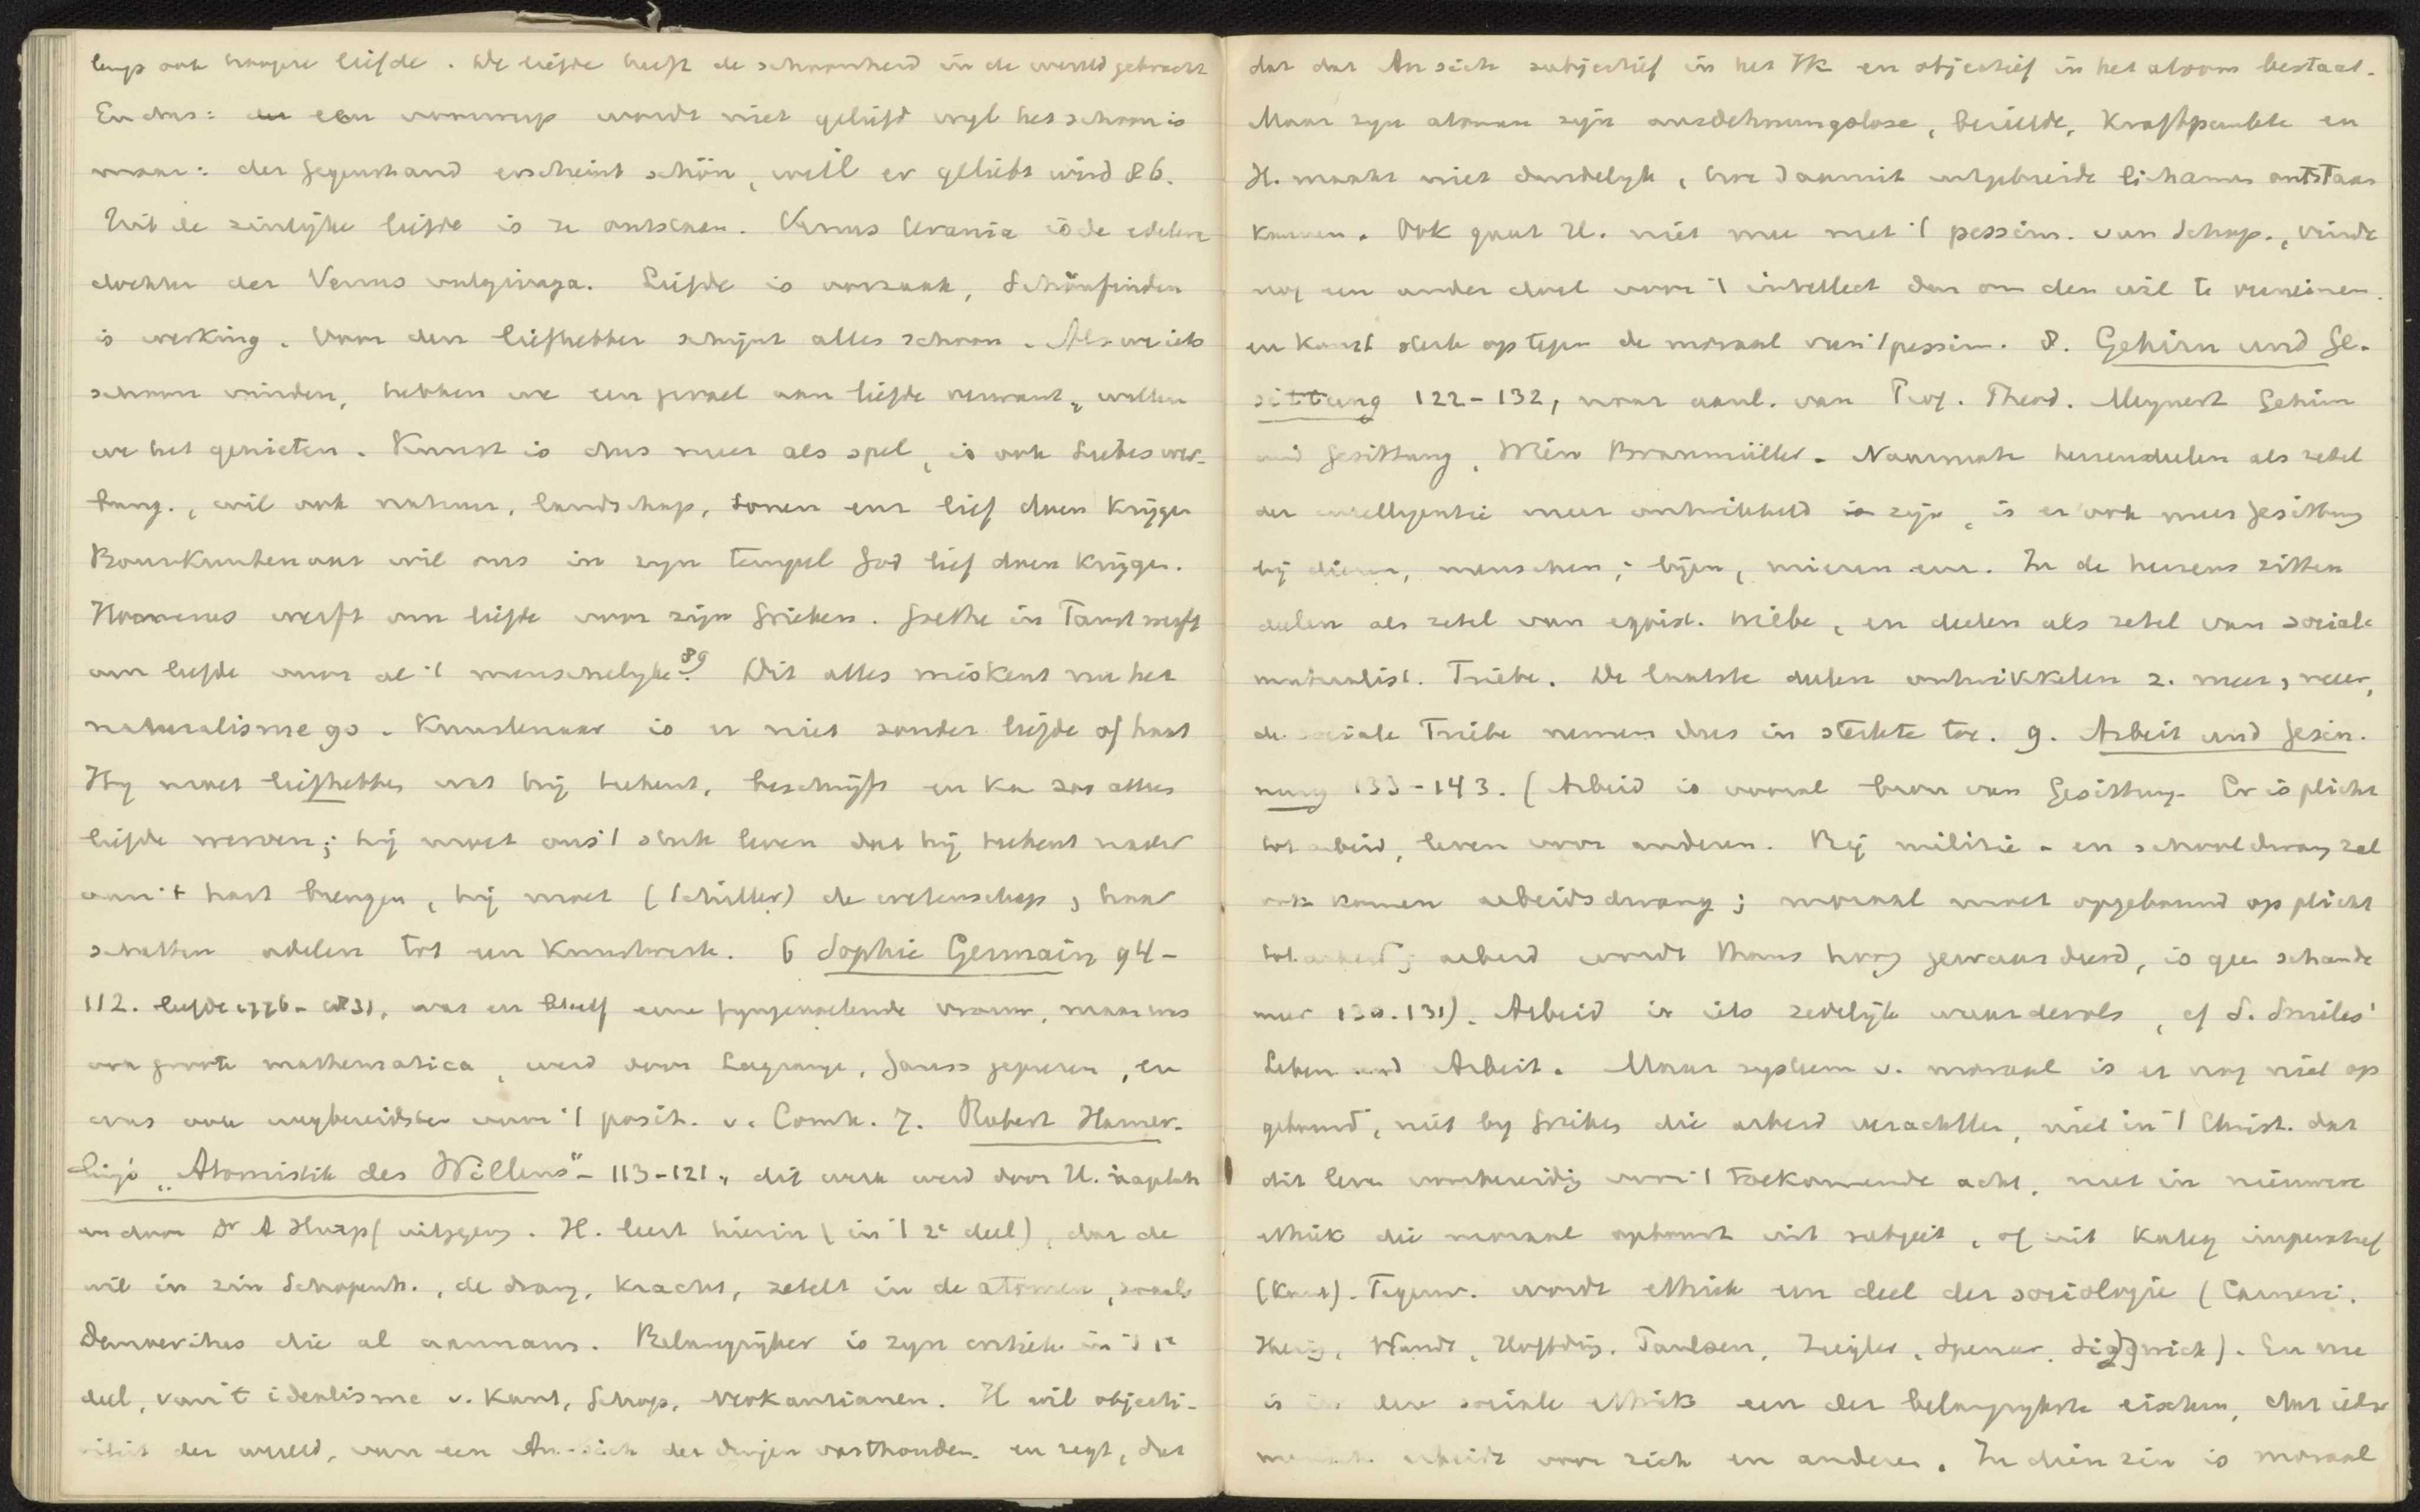 ook hoogere liefde. De liefde heeft de schoonheid in de wereld gebracht
En dus: een voorwerp wordt niet geliefd wijl het schoon is
maar: der Gegenstand erscheint schön, weil er geliebt wird 86.
Uit de zinlijke liefde is ze ontstaan. Venus Urania is de edelere
dochter der Venus vulgivaga. Liefde is oorzaak, Schönfinden
is werking. Voor den liefhebber schijnt alles schoon. Als we iets
schoon vinden, hebben we een gevoel aan liefde verwant, willen
we het genieten. Kunst is dus meer als spel, is ook Liebeswer-
bung., wil ook natuur, landschap, tonen enz lief doen krijgen
Bouwkunstenaar wil ons in zyn tempel God lief doen krijgen.
Homerus werft om liefde voor zijn Grieken. Goethe in Faust werft
om liefde voor al 't menschelyke 89. Dit alles miskent nu het
naturalisme 90. Kunstenaar is er niet zonder liefde of haat
Hy moet liefhebben wat hij tekent, beschrijft en kan zoo alleen
liefde werven; hij moet ons 't stuk leven dat hij tekent nader
aan 't hart brengen, hij moet (Schiller) de wetenschap, haar
schatten adelen tot een kunstwerk. 6 Sophie Germain 94-
112. leefde 1776-1831, was en bleef eene fyngevoelende vrouw, maar was
ook groote mathematica, werd door Lagrange, Gauss geprezen, en
was ook wegbereidster voor 't posit. v. Comte. 7. Robert Hamer-
lings "Atomistik des Willens" - 113-121, dit werk werd door H.
en door Dr A Harpf uitgegev. H. leert hierin (in 't 2e deel), dat de
wil in zin Schopenh., de drang, kracht, zetelt in de atomen, zooals
Democritus die al aannam. Belangrijker is zyn critiek in 't 1e
deel, van 't idealisme v. Kant, Schop, Neokantianen. H wil objecti-
viteit der wereld, van een An-sich der dingen vasthouden. en zegt, dat
dat dat An sich subjectief in het Ik en objectief in het atoom bestaat.
Maar zyn atomen zijn ausdehnungslose, bezielde, Kraftpunkte en
H. maakt niet duidelyk, hoe daarmit uitgebreide lichamen ontstaan
kunnen. Ook gaat H. niet mee met 't pessim. van Schop., vindt
nog een ander doel voor 't intellect dan om den wil te verneinen.
en komt sterk op tegen de moraal van 't pessim. 8. Gehirn und Ge-
sittung 122-132, naar aanl. van Prof. Theod. Meynert Gehirn
und Gesittung, Wien Braumüller. Naarmate hersendeelen als zetel
der intelligentie meer ontwikkeld zijn, is er ook meer Gesittung
bij dieren, menschen; bijen, mieren enz. In de hersens zitten
deelen als zetel van egoist. Triebe, en deelen als zetel van sociale
Triebe. De laatste deelen ontwikkelen z. meer, meer,
de sociale Triebe nemen dus in sterkte toe. 9. Arbeit und Gesin-
nung 133-143. (Arbeid is vooral bron van Gesittung. Er is plicht
tot arbeid, leven voor anderen. Bij militie- en schooldwang zal
ook komen arbeidsdwang; moraal moet opgebouwd op plicht
tot arbeid; arbeid wordt thans hoog gewaardeerd, is geen schande
meer 130.131). Arbeid is iets zedelijk waardevols, cf S. Smiles'
Leben und Arbeit. Maar systeem v. moraal is er nog niet op
gebouwd, niet by Grieken die arbeid verachtten, niet in 't Christ. dat
dit leven voorbereiding voor 't toekomende acht, niet in nieuwere
ethiek die moraal opbouwt uit subject, of uit kateg imperatief
(Kant). Tegenw. wordt ethiek een deel der sociologie (Carneri.
Wundt, Höffding, Paulsen, Ziegler, Spencer, Sidgwick). En nu
is in deze sociale ethiek een der belangrykste eischen, dat ieder
mensch arbeidt voor zich en anderen. In dien zin is moraal